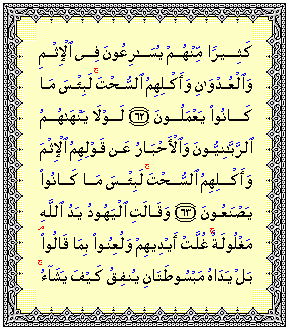 كَثِيرًا مِّنْهُمْ يُسَٰرِعُونَ فِى ٱلْإِثْمِ
وَٱلْعُدْوَٰنِ وَأَكْلِهِمُ ٱلسُّحْتَ ۚ لَبِئْسَ مَا
كَانُوا۟ يَعْمَلُونَ ۝٦٢ لَوْلَا يَنْهَىٰهُمُ
ٱلرَّبَّٰنِيُّونَ وَٱلْأَحْبَارُ عَن قَوْلِهِمُ ٱلْإِثْمَ
وَأَكْلِهِمُ ٱلسُّحْتَ ۚ لَبِئْسَ مَا كَانُوا۟
يَصْنَعُونَ ۝٦٣ وَقَالَتِ ٱلْيَهُودُ يَدُ ٱللَّهِ
مَغْلُولَةٌ ۚ غُلَّتْ أَيْدِيهِمْ وَلُعِنُوا۟ بِمَا قَالُوا۟ ۘ
بَلْ يَدَاهُ مَبْسُوطَتَانِ يُنفِقُ كَيْفَ يَشَآءُ ۚ